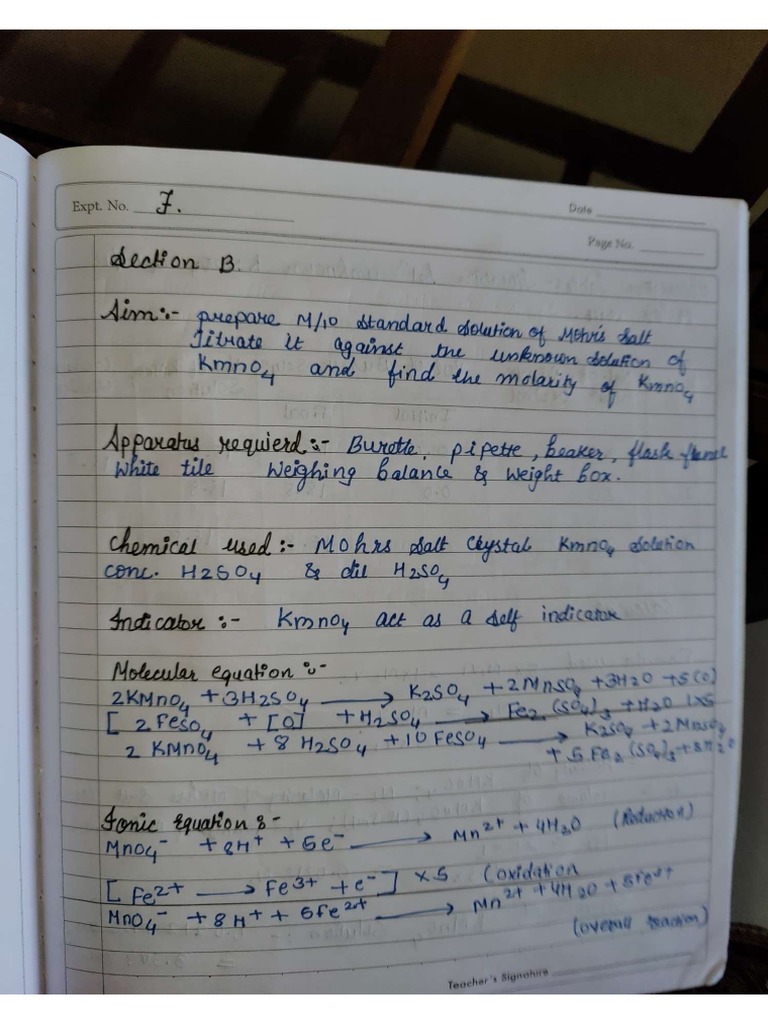 Expt. No. 7.
Date
Page No.
Section B.
Aim:- prepare M/10 standard solution of Mohr's salt
Titrate it against the unknown solution of
KmnO4 and find the molarity of KmnO4
Apparatus requierd:- Burette, pipette, beaker, flask funnel
White tile Weighing balance & weight box.
Chemical used:- Mohrs salt Crystal KmnO4 solution
conc. H2SO4 & dil H2SO4
Indicator:- KmnO4 act as a self indicator
Molecular equation:-
2KMnO4 + 3H2SO4 → K2SO4 + 2MnSO4 + 3H2O + 5(O)
[2FeSO4 + [O] + H2SO4 → Fe2(SO4)3 + H2O]x5
2KMnO4 + 8H2SO4 + 10FeSO4 → K2SO4 + 2MnSO4
+ 5Fe2(SO4)3 + 8H2O
Ionic Equation:-
MnO4⁻ + 8H⁺ + 5e⁻ → Mn²⁺ + 4H2O (Reduction)
[Fe²⁺ → Fe³⁺ + e⁻] x5 (oxidation
MnO4⁻ + 8H⁺ + 5Fe²⁺ → Mn²⁺ + 4H2O + 5Fe³⁺
(overall reaction)
Teacher's Signature